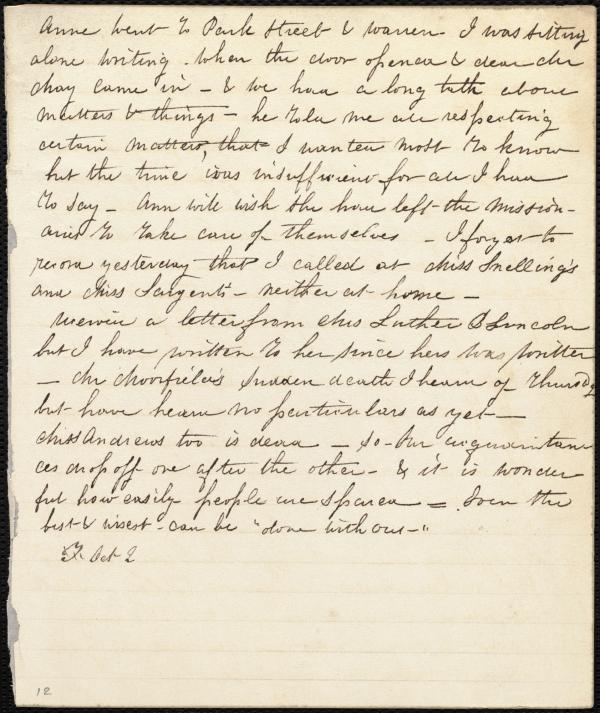 Anne went to Park Street & Warren - I was sitting
alone writing - when the door opened & dear Mr
May came in - & we had a long talk about
matters & things - he told me all respecting
certain matters, that I wanted most to know
but the time was insufficient for all I had
to say - Ann will wish she had left the Mission-
aries to take care of themselves - I forgot to
record yesterday that I called at Miss Snelling's
and Miss Sargents - neither at home -
a letter from Mrs Luther S Lincoln
but I have written to her since hers was written
- Mr Moorfield's sudden death I heard of Thursdy
but have heard no particulars as yet -
Miss Andrews too is dead - So - our acquaintan
ces drop off one after the other - & it is wonder
ful how easily people are spared = Even the
best & wisest - can be "done without -"
Oct 2
12